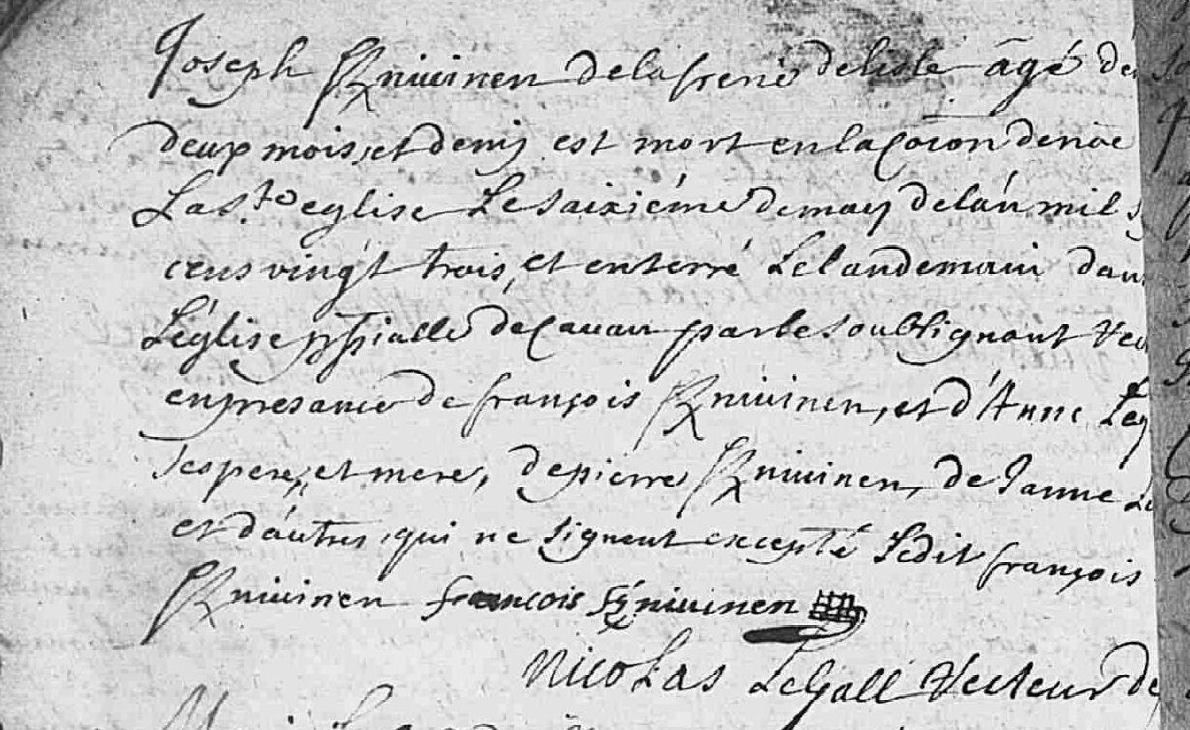 Joseph K/niuinen de la frerie de lisle âgé de
deux mois et demij est mort en la coĩon de nre
La s.te eglise Le saiziéme de may de l'an mil s
cens vingt trois, et enterré Le landemain dan
L'église ppialle de Cauan par le soubsignant
en presance de françois K/niuinen, et d'Anne Leg
ses pere, et mere, de pierre K/niuinen, de Janne Le
et d'autres, qui ne signent excepté Ledit françois
K/niuinen francois K/niuinen
Nicolas LeGall Recteur de